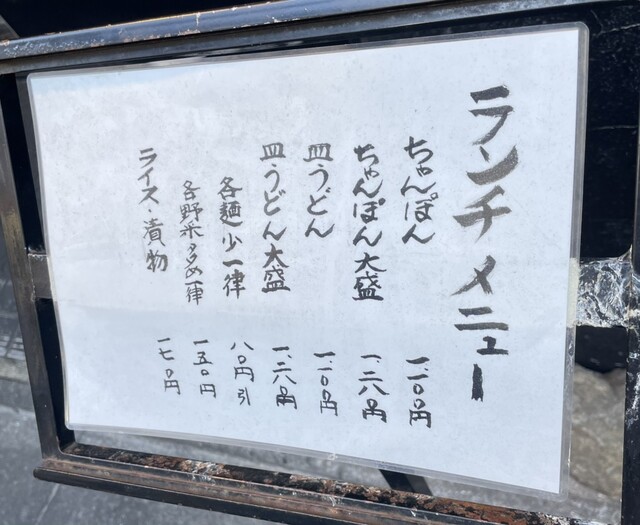 ランチメニュー
ちゃんぽん 一、一〇〇円
ちゃんぽん大盛 一、二八〇円
皿うどん 一、一〇〇円
皿うどん大盛 一、二八〇円
各麺少一律 八〇円引
各野菜多め一律 一五〇円
ライス・漬物 一七〇円